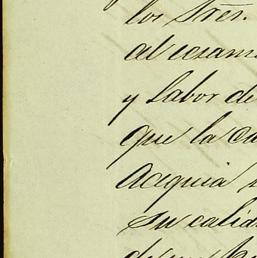 los Sres.
al exam
y labor de
que la ca
Acequia
su calid